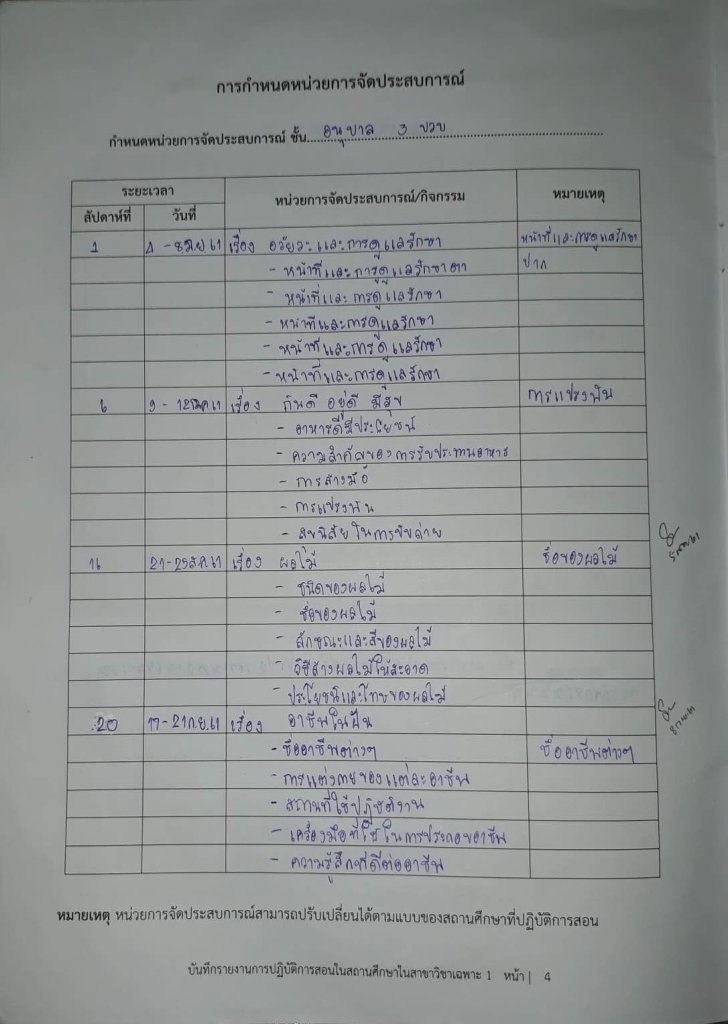 การกำหนดหน่วยการจัดประสบการณ์
กำหนดหน่วยการจัดประสบการณ์ ชั้น อนุบาล 3 ขวบ
ระยะเวลา หน่วยการจัดประสบการณ์/กิจกรรม หมายเหตุ
สัปดาห์ที่ วันที่
1 4 - 8 มิ.ย. 61 เรื่อง อวัยวะและการดูแลรักษา หน้าที่และการดูแลรักษา
- หน้าที่และการดูแลรักษาตา ปาก
- หน้าที่และการดูแลรักษา
- หน้าที่และการดูแลรักษา
- หน้าที่และการดูแลรักษา
- หน้าที่และการดูแลรักษา
6 9 - 12 61 เรื่อง กินดี อยู่ดี มีสุข การแปรงฟัน
- อาหารดีมีประโยชน์
- ความสำคัญของการรับประทานอาหาร
- การล้างมือ
- การแปรงฟัน
- สุขนิสัยในการขับถ่าย
21-25 ส.ค. 61 เรื่อง ผลไม้ ชื่อของผลไม้
- ชนิดของผลไม้
- ชื่อของผลไม้
- ลักษณะและสีของผลไม้
- วิธีล้างผลไม้ให้สะอาด
- ประโยชน์และโทษของผลไม้
20 17-21 ก.ย. 61 เรื่อง อาชีพในฝัน
- ชื่ออาชีพต่างๆ ชื่ออาชีพต่างๆ
- การแต่งกายของแต่ละอาชีพ
- สถานที่ใช้ปฏิบัติงาน
- เครื่องมือที่ใช้ในการประกอบอาชีพ
- ความรู้สึกที่ดีต่ออาชีพ
หมายเหตุ หน่วยการจัดประสบการณ์สามารถปรับเปลี่ยนได้ตามแบบของสถานศึกษาที่ปฏิบัติการสอน
บันทึกรายงานการปฏิบัติการสอนในสถานศึกษาในสาขาวิชาเฉพาะ 1 หน้า | 4